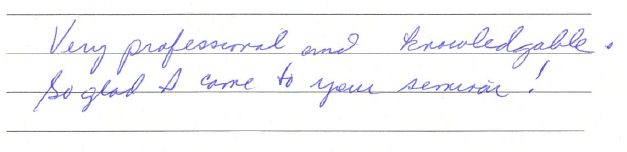 Very professional and knowledgable.
So glad I came to your seminar!